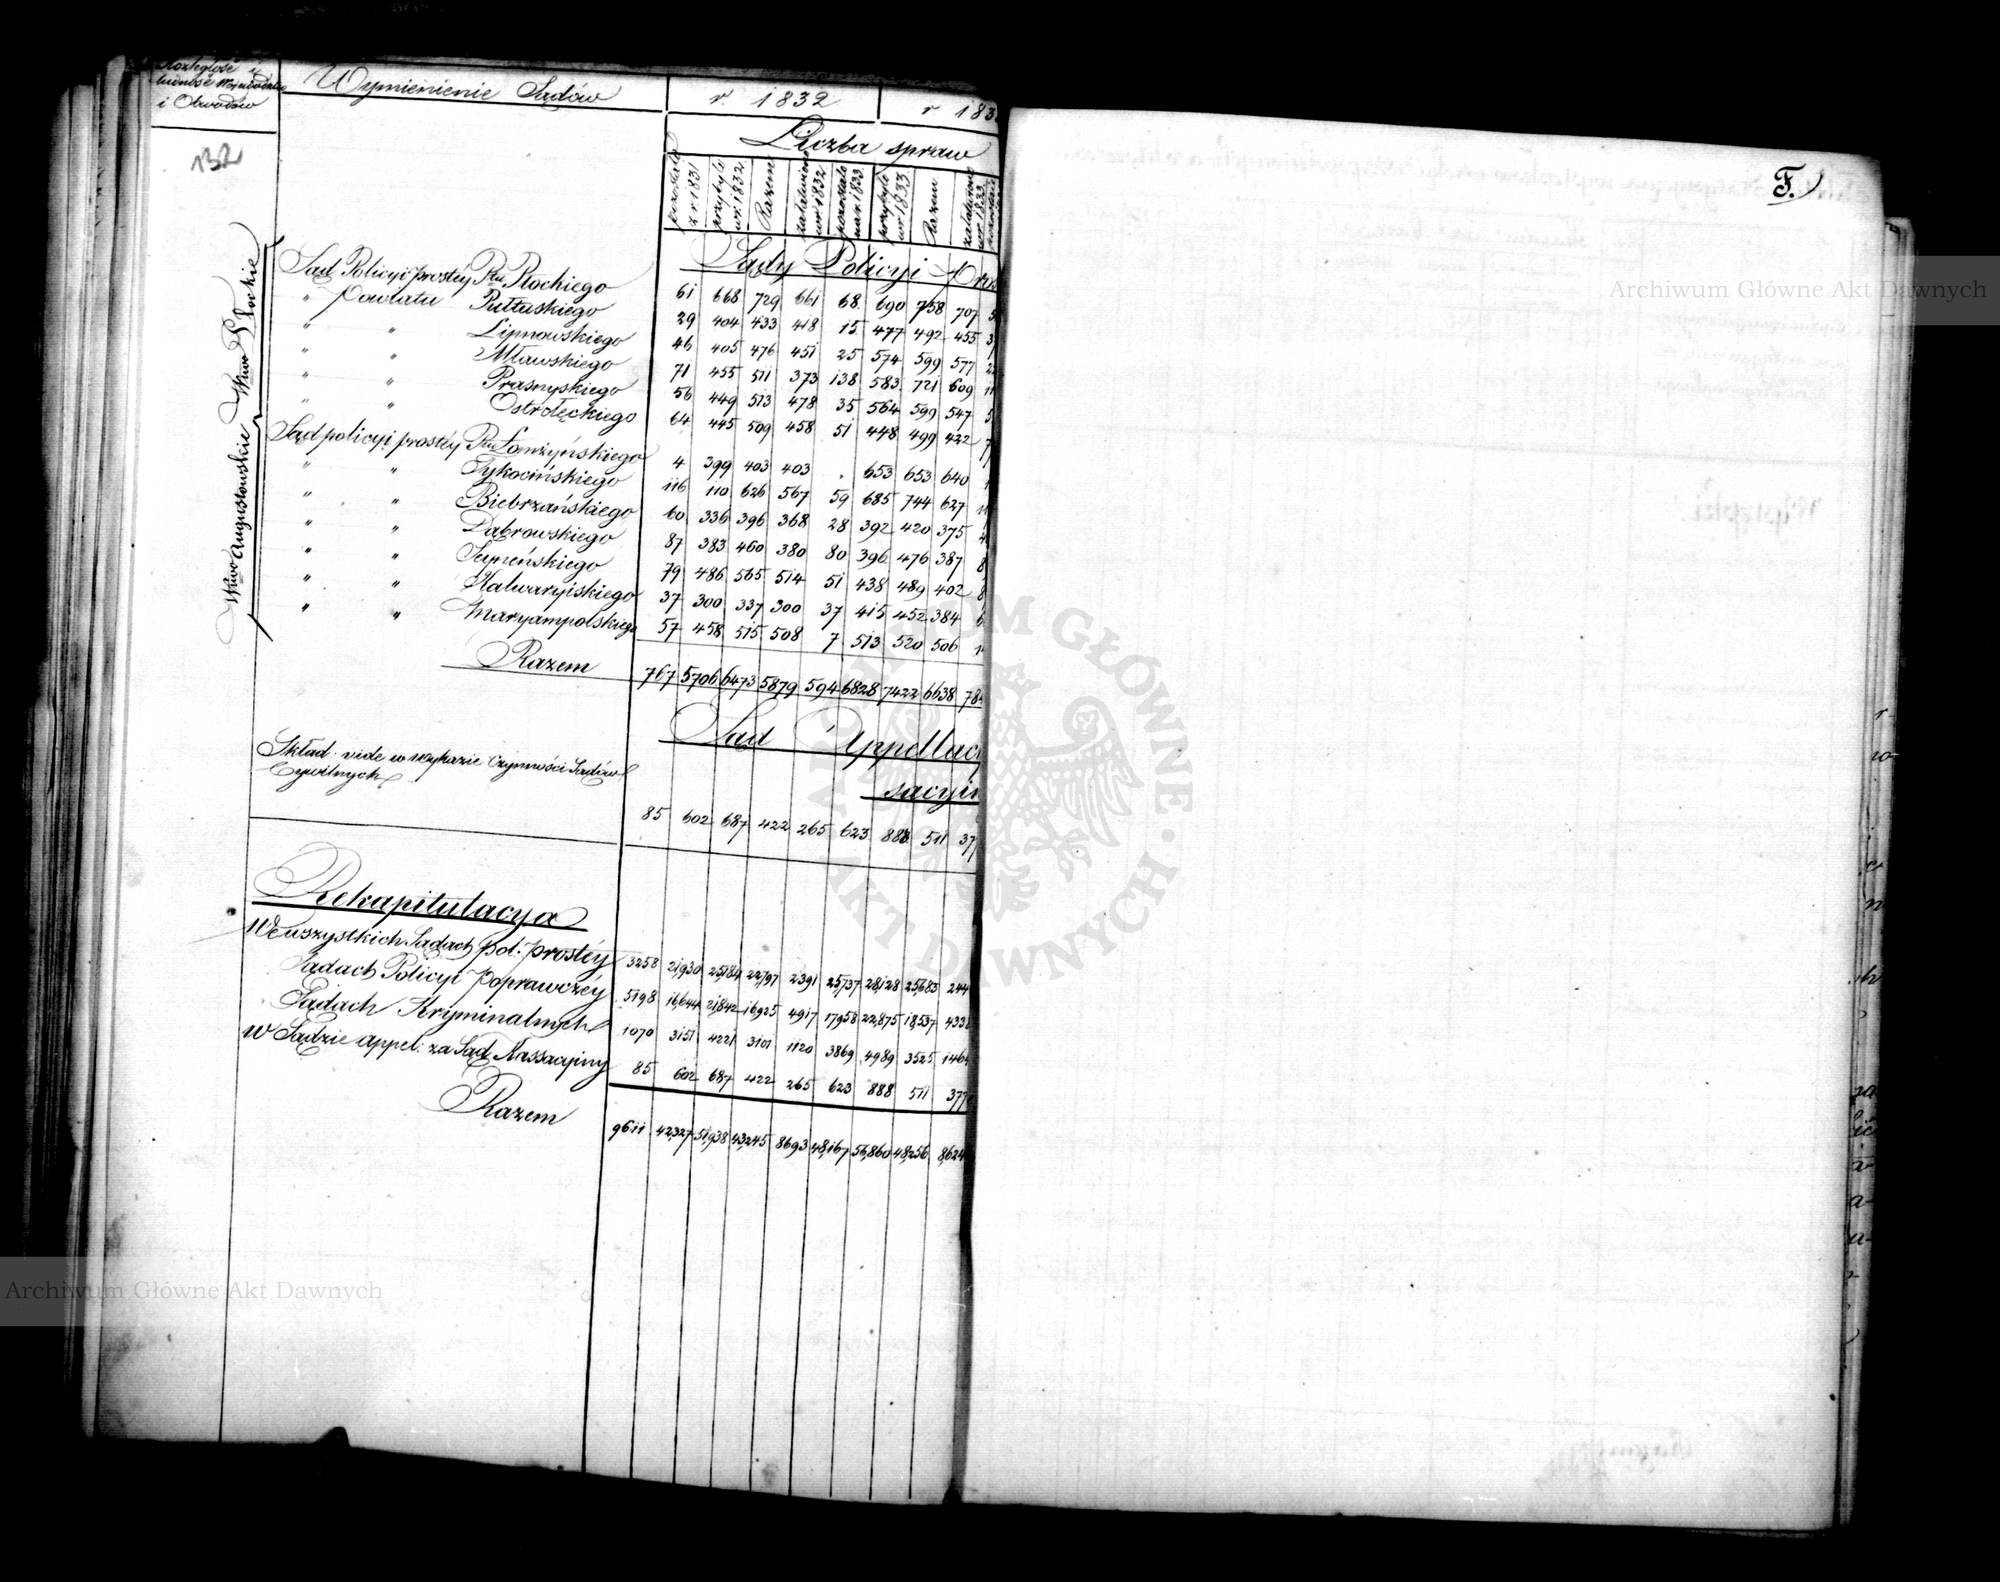 Rozległość i
ludność Województw
i Obwodów
Wymienienie Sądów
r. 1832
r 183
132
Liczba spraw
pozostało z r 1831
przybyło w r. 1832
Razem
załatwiono w r 1832
pozostało na r. 1833
przybyło w r 1833
Razem
załatwiono w r 1833
Sądy Policyi Pros
Wwo Płockie
Sąd Policyi prostéy Ptu Płockiego 61 668 729 661 68 690 758 707
" Powiatu Pułtuskiego 29 404 433 418 15 477 492 455
" " Lipnowskiego 46 405 476 451 25 574 599 577
" " Mławskiego 71 455 511 373 138 583 721 609
" " Prasnyskiego 56 449 513 478 35 564 599 547
" " Ostrołęckiego 64 445 509 458 51 448 499 422
Wwo Augustowskie
Sąd policyi prostéy Ptu Łomżyńskiego 4 399 403 403 . 653 653 640
" " Tykocińskiego 116 110 626 567 59 685 744 627
" " Biebrzańskiego 60 336 396 368 28 392 420 375
" " Dąbrowskiego 87 383 460 380 80 396 476 387
" " Seyneńskiego 79 486 565 514 51 438 489 402
" " Kalwaryiskiego 37 300 337 300 37 415 452 384
" " Maryampolskiego 57 458 515 508 7 513 520 506
Razem 767 5706 6473 5879 594 6828 7422 6638 784
Sąd Appellacy
sacyin
Skład vide w wykazie Czynności Sądów
Cywilnych
85 602 687 422 265 623 888 511 37
Rekapitulacya
We wszystkich Sądach pol: prostéy 3258 21,930 25,184 22,797 2391 25,737 28,128 25,683 244
Sądach Policyi Poprawczéy 5198 16,644 21,842 16,925 4917 17,958 22,875 18,537 4338
Sądach Kryminalnych 1070 3151 4221 3101 1120 3869 4989 3525 1464
W Sądzie appel: za Sąd Kassacyiny 85 602 687 422 265 623 888 511 377
Razem 9611 42,327 51,938 43,245 8693 48,167 56,860 48,256 8,624
F.
Archiwum Główne Akt Dawnych
Archiwum Główne Akt Dawnych
ARCHIWUM GŁÓWNE · AKT DAWNYCH ·